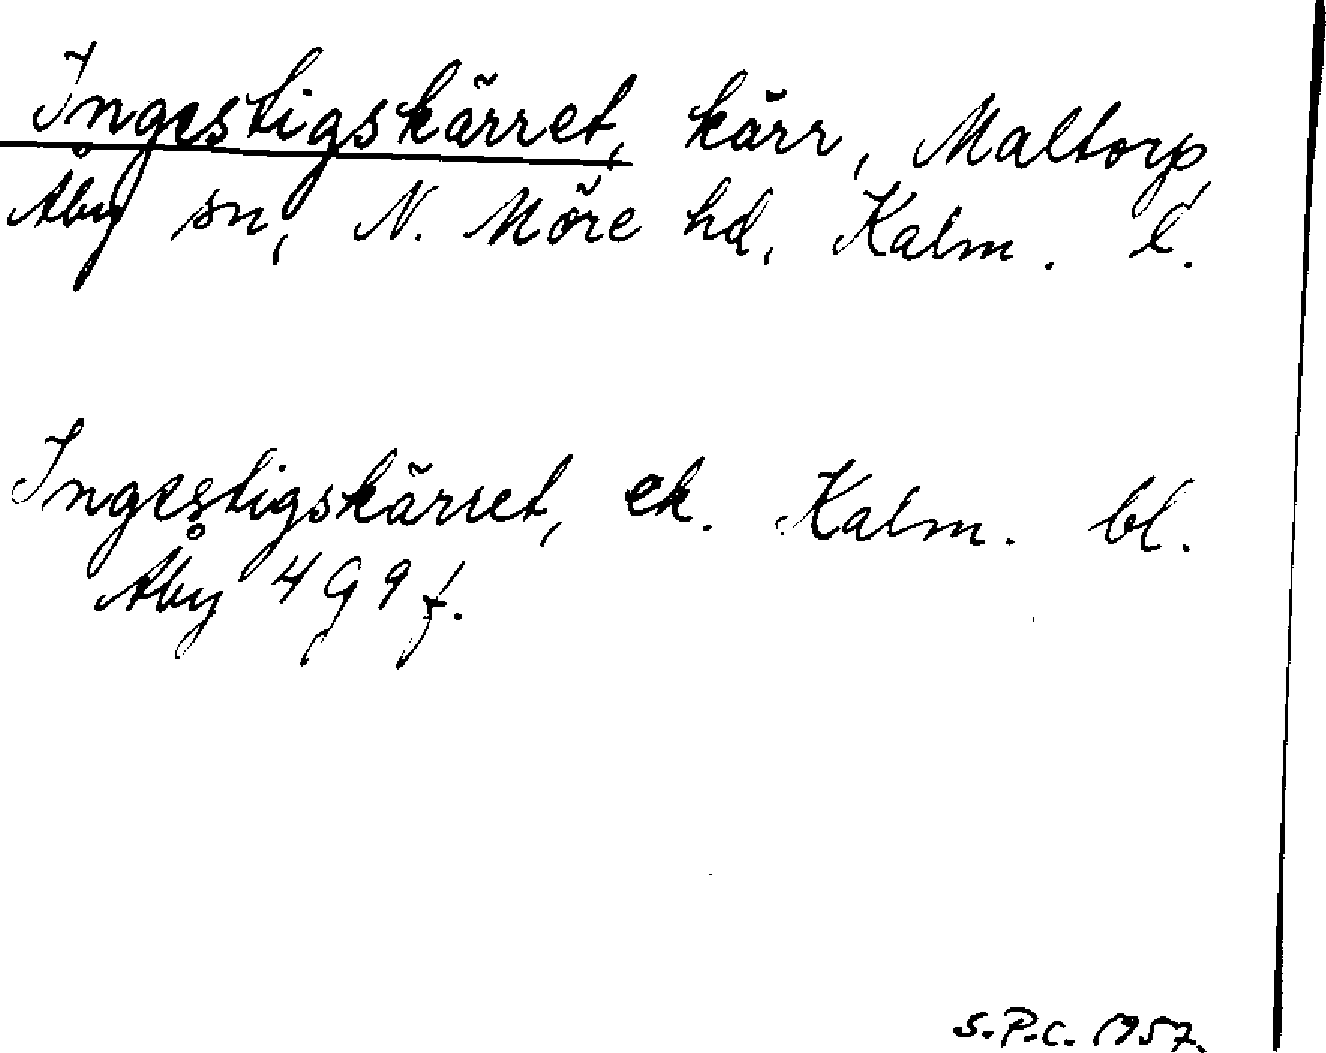 Ingestigskärret, kärr, Maltorp,
Åby sn, N. Möre hd, Kalm. l.
Ingestigskärret, ek. Kalm. bl.
Åby 4 G 9 f.
S.P.C. 1957.